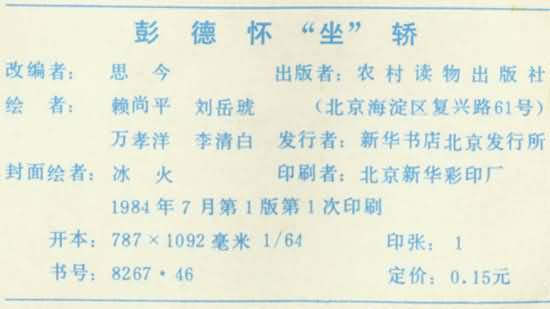 彭德怀“坐”轿
改编者：思今 出版者：农村读物出版社
绘者：赖尚平 刘岳琥 （北京海淀区复兴路61号）
万孝洋 李清白 发行者：新华书店北京发行所
封面绘者：冰火 印刷者：北京新华彩印厂
1984年7月第1版第1次印刷
开本：787×1092毫米 1/64 印张：1
书号：8267·46 定价：0.15元